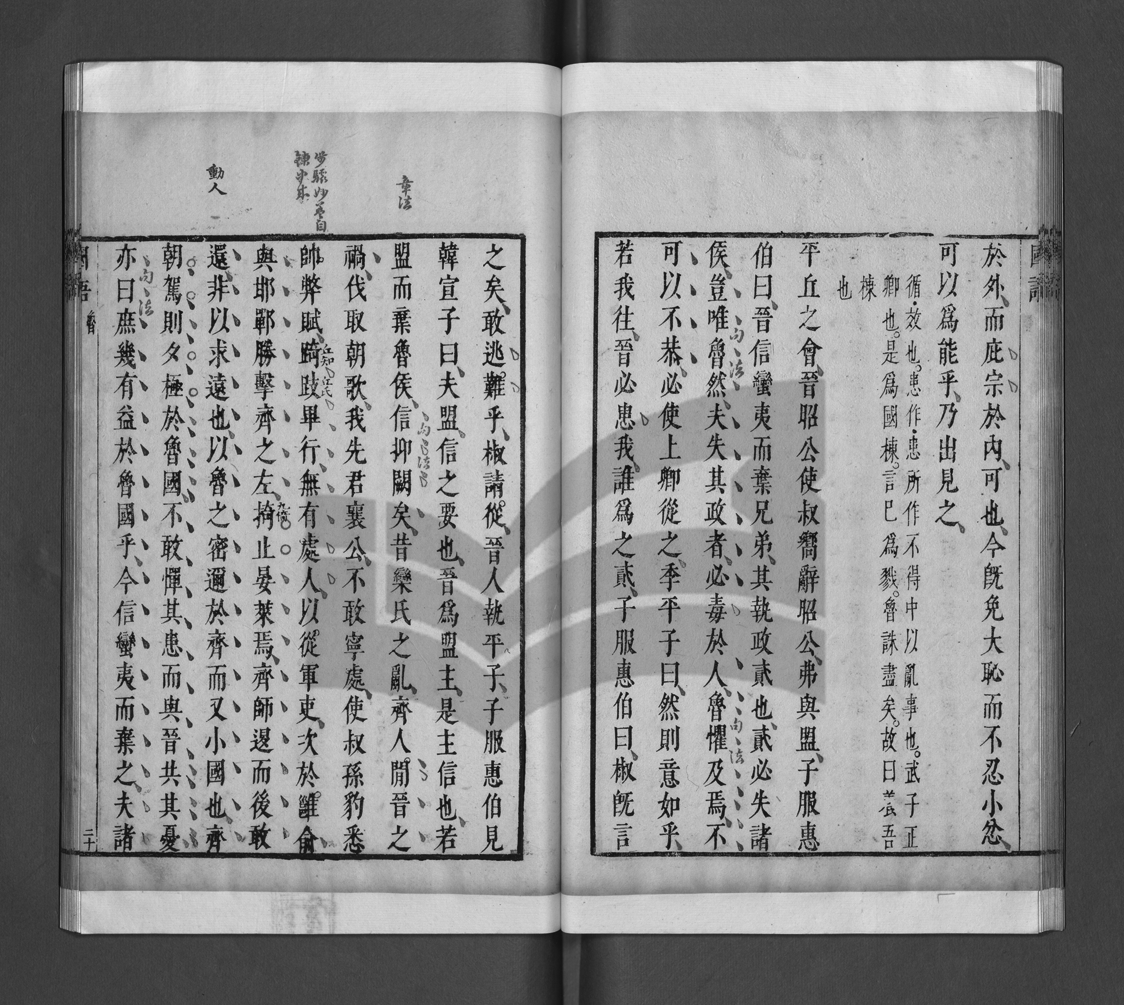 國語
於外、而庇宗於內、可也、今旣免大恥而不忍小忿、
可以爲能乎、乃出見之、
循・效也。患作・患所作不得中以亂事也。武子正
卿也。是爲國棟。言巳爲戮。魯誅盡矣。故曰養吾
棟
也
平丘之會、晉昭公使叔嚮辭昭公、弗與盟、子服惠
伯曰、晉信蠻夷而棄兄弟、其執政貳也、貳必失諸
侯、豈唯魯然、夫失其政者、必毒於人、魯懼及焉、不
可以不恭、必使上卿從之、季平子曰、然則意如乎、
若我往、晉必患我、誰爲之貳、子服惠伯曰、椒旣言
句法
句法
之矣、敢逃難乎、椒請從、晉人執平子、子服惠伯見
韓宣子曰、夫盟、信之要也、晉爲盟主、是主信也、若
盟而棄魯侯、信抑闕矣、昔欒氏之亂、齊人閒晉之
禍、伐取朝歌、我先君襄公、不敢寧處、使叔孫豹悉
帥弊賦、踦跂畢行、無有處人、以從軍吏、次於雝俞
與邯鄲勝擊齊之左、掎止晏萊焉、齊師退而後敢
還、非以求遠也、以魯之密邇於齊而又小國也、齊
朝駕則夕極於魯國、不敢憚其患而與晉共其憂、
亦曰庶幾有益於魯國乎、今信蠻夷而棄之、夫諸
章法
動人
句法
句法
國語
魯
二十